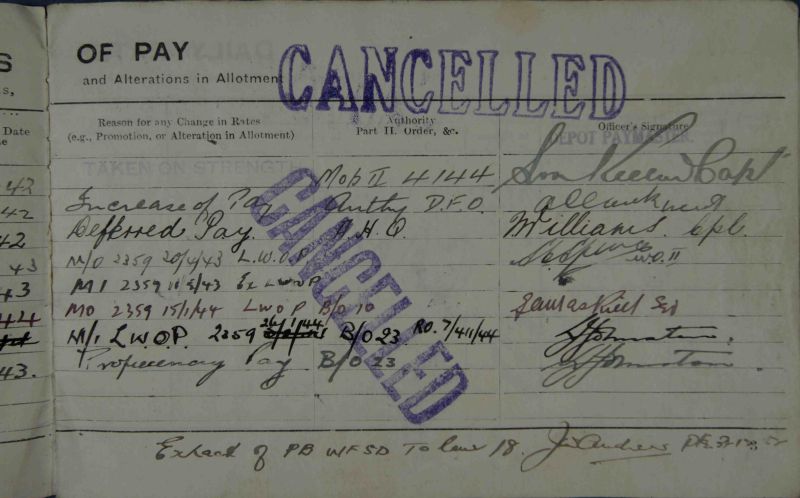 OF PAY
and Alterations in Allotment
CANCELLED
S
s,
Date
Reason for any Change in Rates
(e.g., Promotion, or Alteration in Allotment)
Authority
Part II. Order, &c.
Officer's Signature
DEPOT PAYMASTER
TAKEN ON STRENGTH
42 Mob II 4144 Capt
42 Increase of Pay Authy D.F.O.
42 Deferred Pay. A.H.Q. Williams. Cpl.
43 M/O 2359 20/4/43 L.W.O.P. W.O. II
43 M1 2359 Ex LWOP
44 MO 2359 15/1/44 LWOP B/O 10
M/1 L.W.O.P. 2359 26/1/44 B/O 23 RO. 7/4/1/44 Johnston.
43. Proficiency Pay B/O 23 Johnston.
CANCELLED
Extract of PB 18.